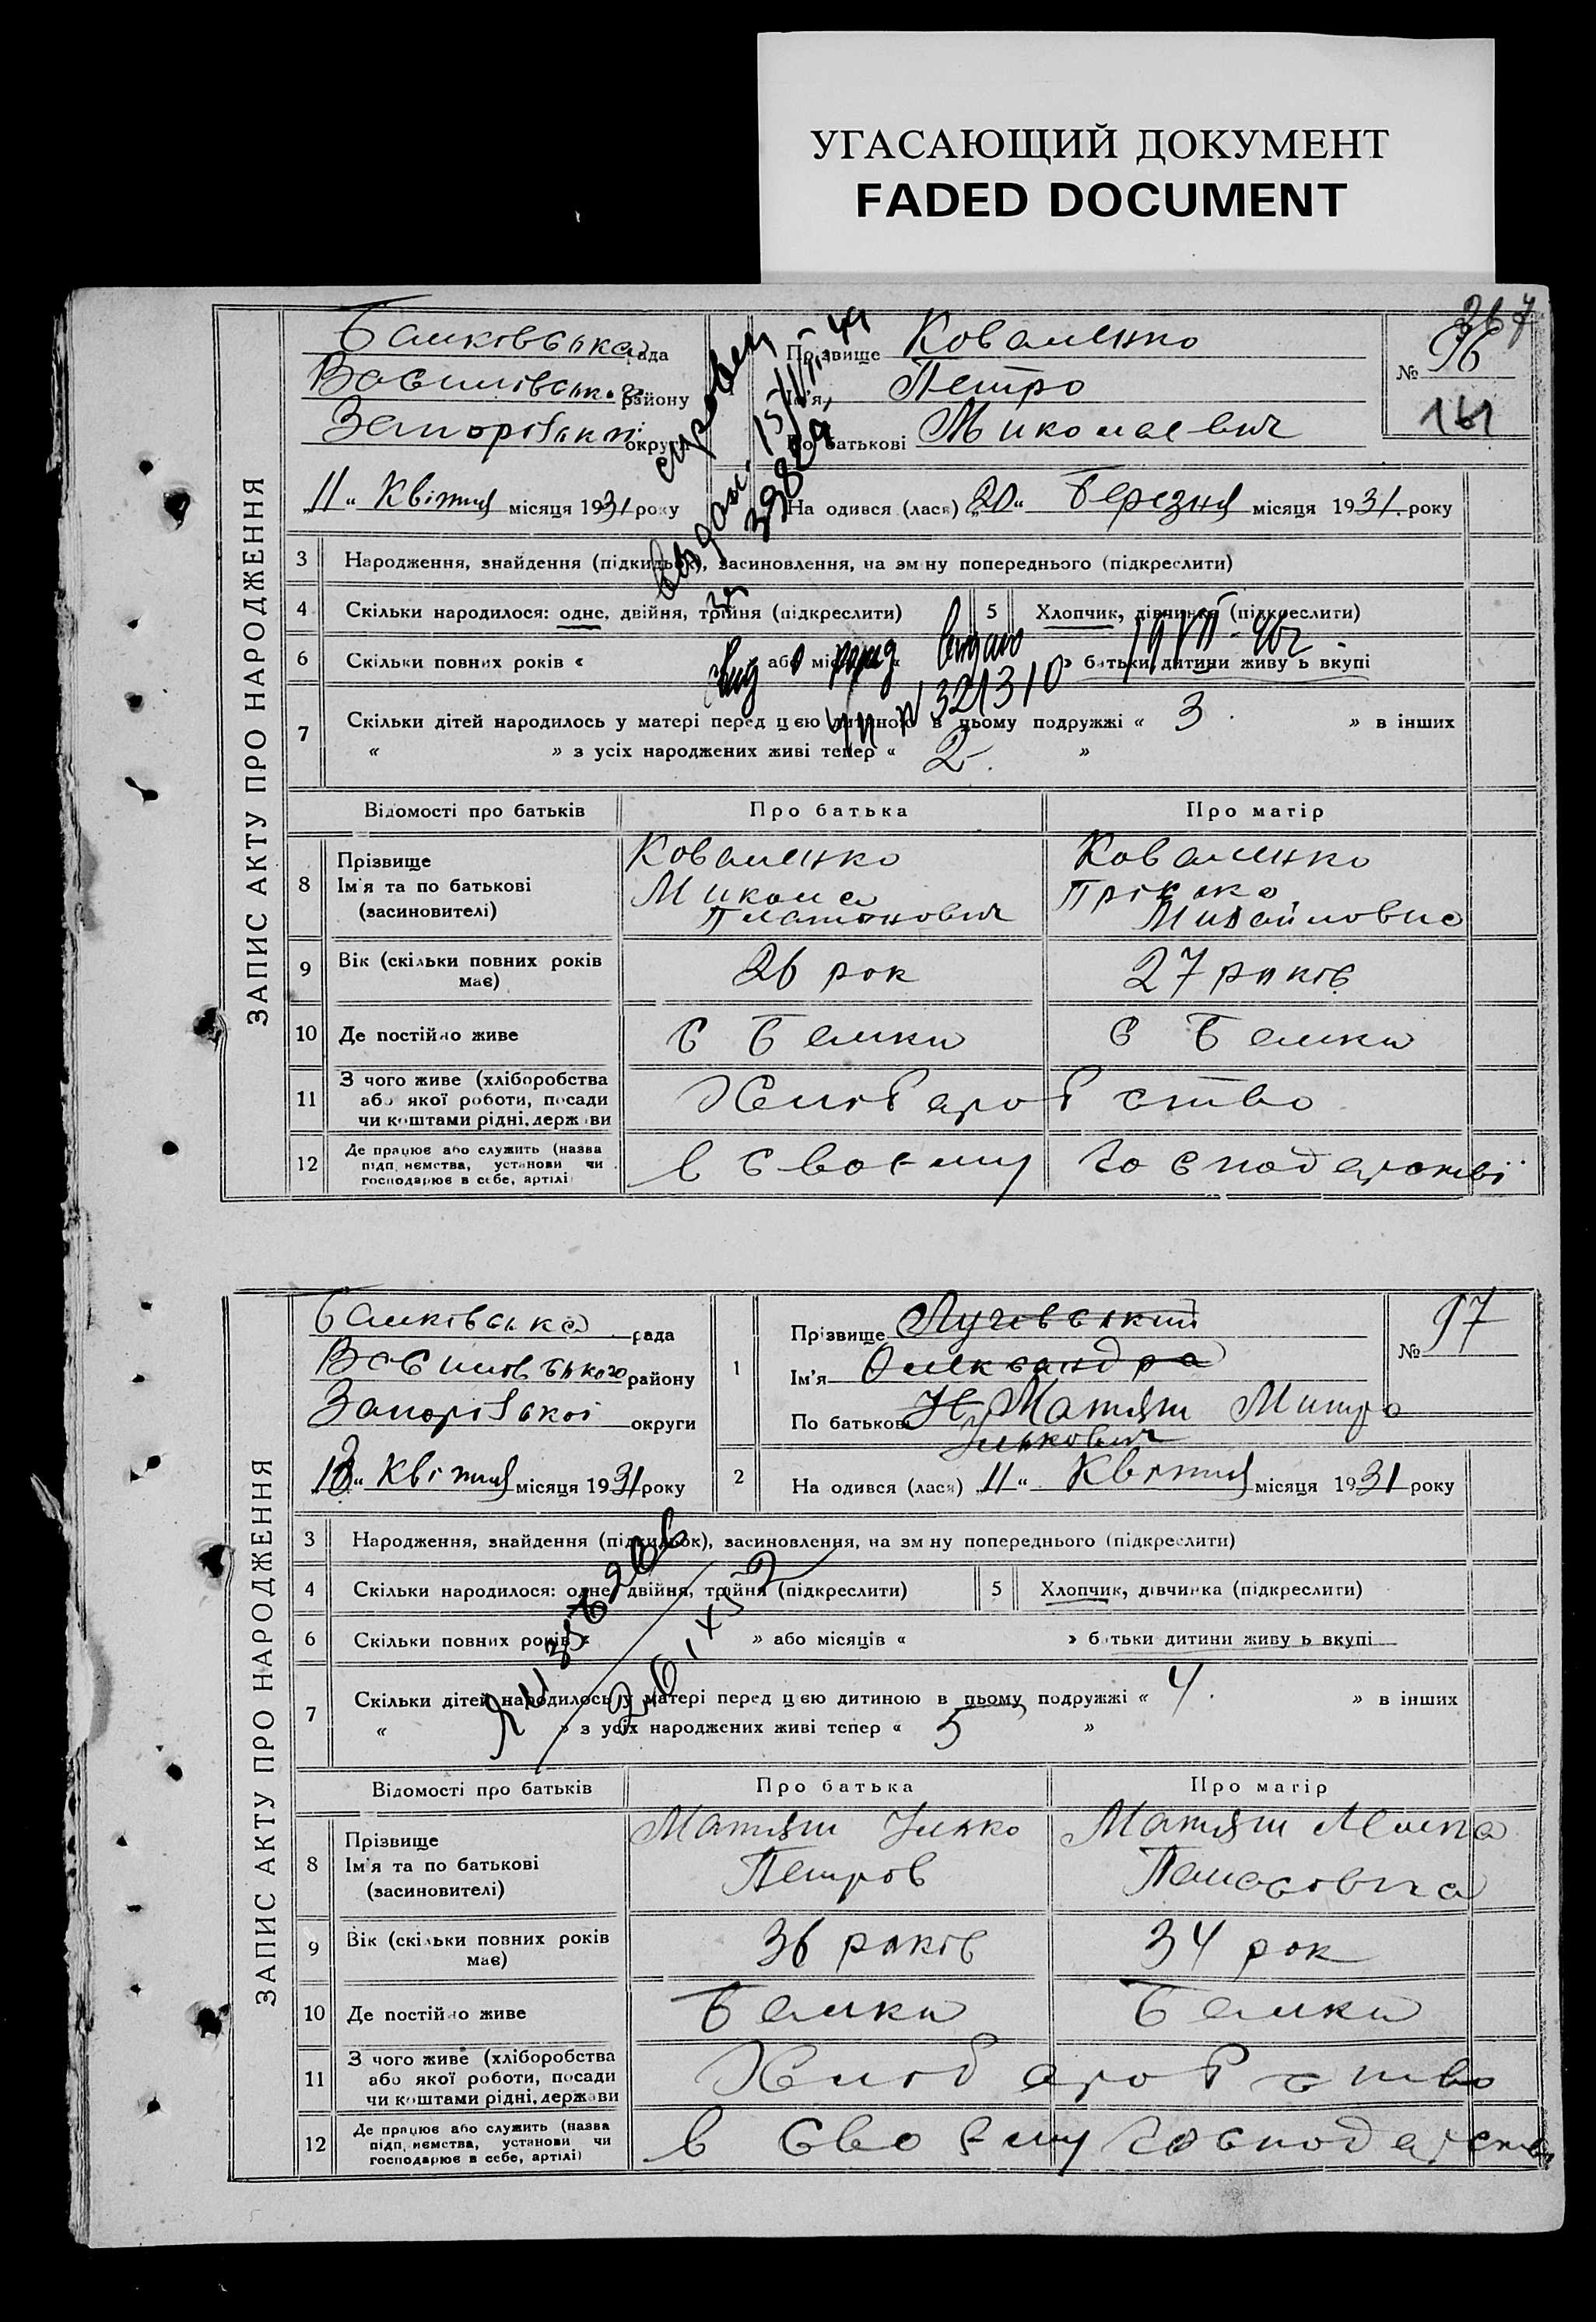 УГАСАЮЩИЙ ДОКУМЕНТ
FADED DOCUMENT
367
ЗАПИС АКТУ ПРО НАРОДЖЕННЯ
Балківська рада
Василівського району
Запорізької округи
Прізвище Коваленко
Ім'я Петро
По батькові Миколаевич
№ 96
161
„11“ Квітня місяця 1931 року
На одився (лася) „20“ Березня місяця 1931 року
3 Народження, знайдення (підкидьок), засиновлення, на зм ну попереднього (підкреслити)
4 Скільки народилося: одне, двійня, трійня (підкреслити) 5 Хлопчик, дівчинка (підкреслити)
6 Скільки повних років « » або місяців « » батьки дитини живу ь вкупі
№ 321310
7 Скільки дітей народилось у матері перед цєю дитиною в цьому подружжі « 3 » в інших
« » з усіх народжених живі тепер « 2 »
Відомості про батьків Про батька Про матір
8 Прізвище Ім'я та по батькові (засиновителі)
Коваленко Микола Платонович
Коваленко Михайловна
9 Вік (скільки повних років має) 26 рок 27 років
10 Де постійно живе с Балки с Балки
11 З чого живе (хліборобства або якої роботи, посади чи коштами рідні, держави Хліборобство
12 Де працює або служить (назва підп. иємства, установи чи господарює в себе, артілі) в своєму господарстві
ЗАПИС АКТУ ПРО НАРОДЖЕННЯ
Балківська рада
Василівського району
Запорізької округи
1 Прізвище Лучевський
Ім'я Олександра
По батькові Матяш Митро
Ількович
№ 97
„13“ Квітня місяця 1931 року
2 На одився (лася) „11“ Квітня місяця 1931 року
3 Народження, знайдення (підкидьок), засиновлення, на зм ну попереднього (підкреслити)
4 Скільки народилося: одне, двійня, трійня (підкреслити) 5 Хлопчик, дівчинка (підкреслити)
6 Скільки повних років « » або місяців « » батьки дитини живу ь вкупі
7 Скільки дітей народилось у матері перед цєю дитиною в цьому подружжі « 4 » в інших
« » з усіх народжених живі тепер « 5 »
Відомості про батьків Про батька Про матір
8 Прізвище Ім'я та по батькові (засиновителі)
Матяш Ілько Петров
Матяш Панасовна
9 Вік (скільки повних років має) 36 років 34 рок
10 Де постійно живе Балки Балки
11 З чого живе (хліборобства або якої роботи, посади чи коштами рідні, держави Хліборобство
12 Де працює або служить (назва підп. иємства, установи чи господарює в себе, артілі) в своєму господарстві